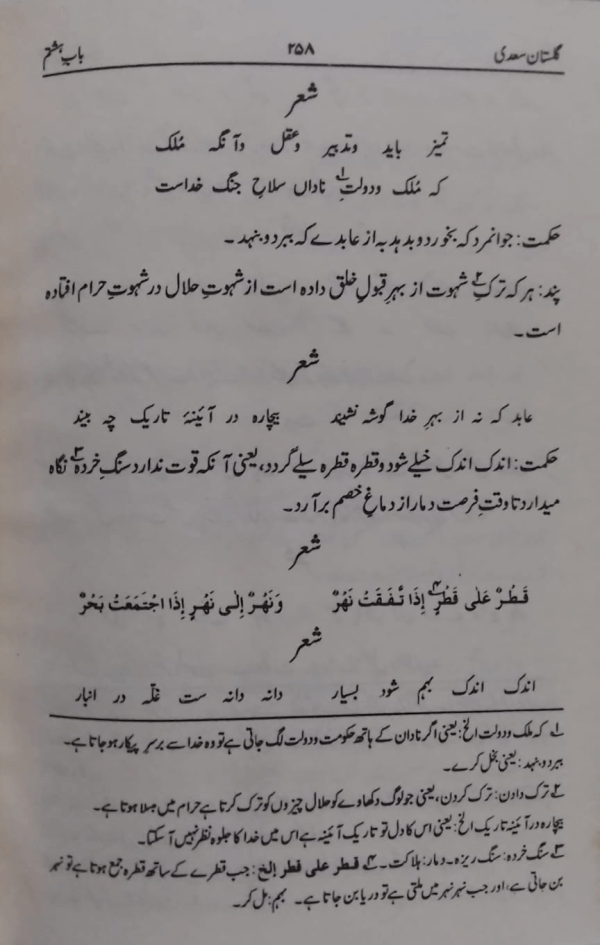 گلستان سعدی ۲۵۸ باب ہشتم
شعر
تمیز باید وتدبیر وعقل وآنگہ مُلک
کہ مُلک ودولتِ۱ ناداں سلاحِ جنگ خداست
حکمت: جوانمرد کہ بخورد وبدہد بہ از عابدے کہ ببرد وبنہد۔
پند: ہر کہ ترکِ۲ شہوت از بہرِ قبولِ خلق دادہ است از شہوتِ حلال در شہوتِ حرام افتادہ
است۔
شعر
عابد کہ نہ از بہرِ خدا گوشہ نشیند بیچارہ در آئینۂ تاریک چہ بیند
حکمت: اندک اندک خیلے شود وقطرہ قطرہ سیلے گردد، یعنی آنکہ قوت ندارد سنگِ خردہ۳ نگاہ
میدارد تا وقتِ فرصت دمار از دماغِ خصم برآرد۔
شعر
قَطْرٌ عَلٰی قَطْرٍ۴ إِذَا تَّفَقَتْ نَهْرٌ وَنَهْرٌ إِلٰی نَهْرٍ إِذَا اجْتَمَعَتْ بَحْرٌ
شعر
اندک اندک بہم شود بسیار دانہ دانہ ست غلّہ در انبار
۱ کہ ملک ودولت الخ: یعنی اگر نادان کے ہاتھ حکومت ودولت لگ جاتی ہے تو وہ خدا سے برسرِ پیکار ہوجاتا ہے۔
ببرد وبنہد: یعنی بخل کرے۔
۲ ترک دادن: ترک کردن، یعنی جو لوگ دکھاوے کو حلال چیزوں کو ترک کرتا ہے حرام میں مبتلا ہوتا ہے۔
بیچارہ در آئینہ تاریک الخ: یعنی اس کا دل تو تاریک آئینہ ہے اس میں خدا کا جلوہ نظر نہیں آسکتا۔
۳ سنگ خردہ: سنگ ریزہ۔ دمار: ہلاکت۔ ۴ قطر علی قطر إلخ: جب قطرے کے ساتھ قطرہ جمع ہوتا ہے تو نہر
بن جاتی ہے، اور جب نہر نہر میں ملتی ہے تو دریا بن جاتا ہے۔ بہم: مل کر۔